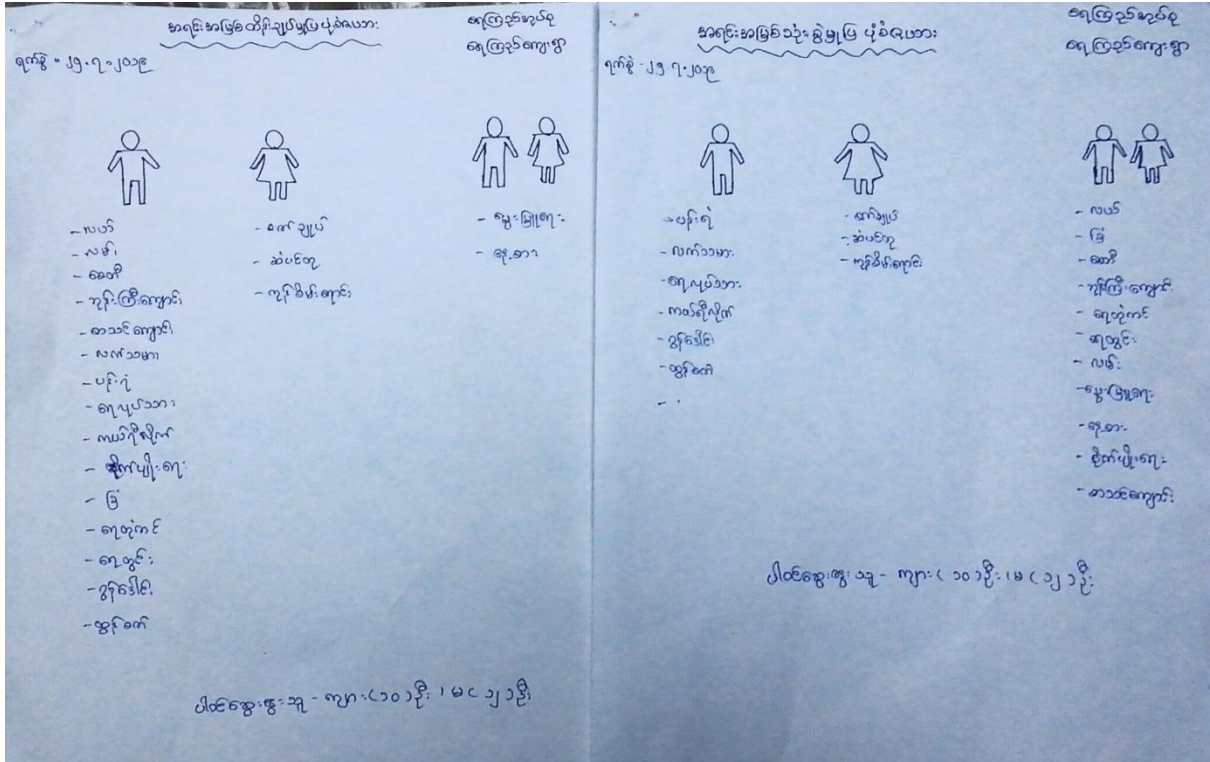 အရင်းအမြစ်ထိန်းချုပ်မှုပြ ပုံစံဇယား
ရေကြည်အုပ်စု
ရေကြည်ကျေးရွာ
ရက်စွဲ - ၂၅.၇.၂၀၁၉
- လယ်
- လမ်း
- စေတီ
- ဘုန်းကြီးကျောင်း
- စာသင်ကျောင်း
- လက်သမား
- ပန်းရံ
- ရေလုပ်သား
- ကယ်ရီလိုက်
- စိုက်ပျိုးရေး
- ခြံ
- ရေတုံကင်
- ရေတွင်း
- ဒွန်ဒေါင်း
- ထွန်စက်
- စက်ချုပ်
- ဆံပင်ညှပ်
- ကုန်စိမ်းရောင်း
- မွေးမြူရေး
- နေ့စား
ပါဝင်ဆွေးနွေးသူ - ကျား (၁၀) ဦး ၊ မ (၁၂) ဦး
အရင်းအမြစ်သုံးစွဲမှုပြ ပုံစံဇယား
ရေကြည်အုပ်စု
ရေကြည်ကျေးရွာ
ရက်စွဲ - ၂၅.၇.၂၀၁၉
- ပန်းရံ
- လက်သမား
- ရေလုပ်သား
- ကယ်ရီလိုက်
- ဒွန်ဒေါင်း
- ထွန်စက်
- စက်ချုပ်
- ဆံပင်ညှပ်
- ကုန်စိမ်းရောင်း
- လယ်
- ခြံ
- စေတီ
- ဘုန်းကြီးကျောင်း
- ရေတုံကင်
- ရေတွင်း
- လမ်း
- မွေးမြူရေး
- နေ့စား
- စိုက်ပျိုးရေး
- စာသင်ကျောင်း
ပါဝင်ဆွေးနွေးသူ - ကျား (၁၀) ဦး ၊ မ (၁၂) ဦး